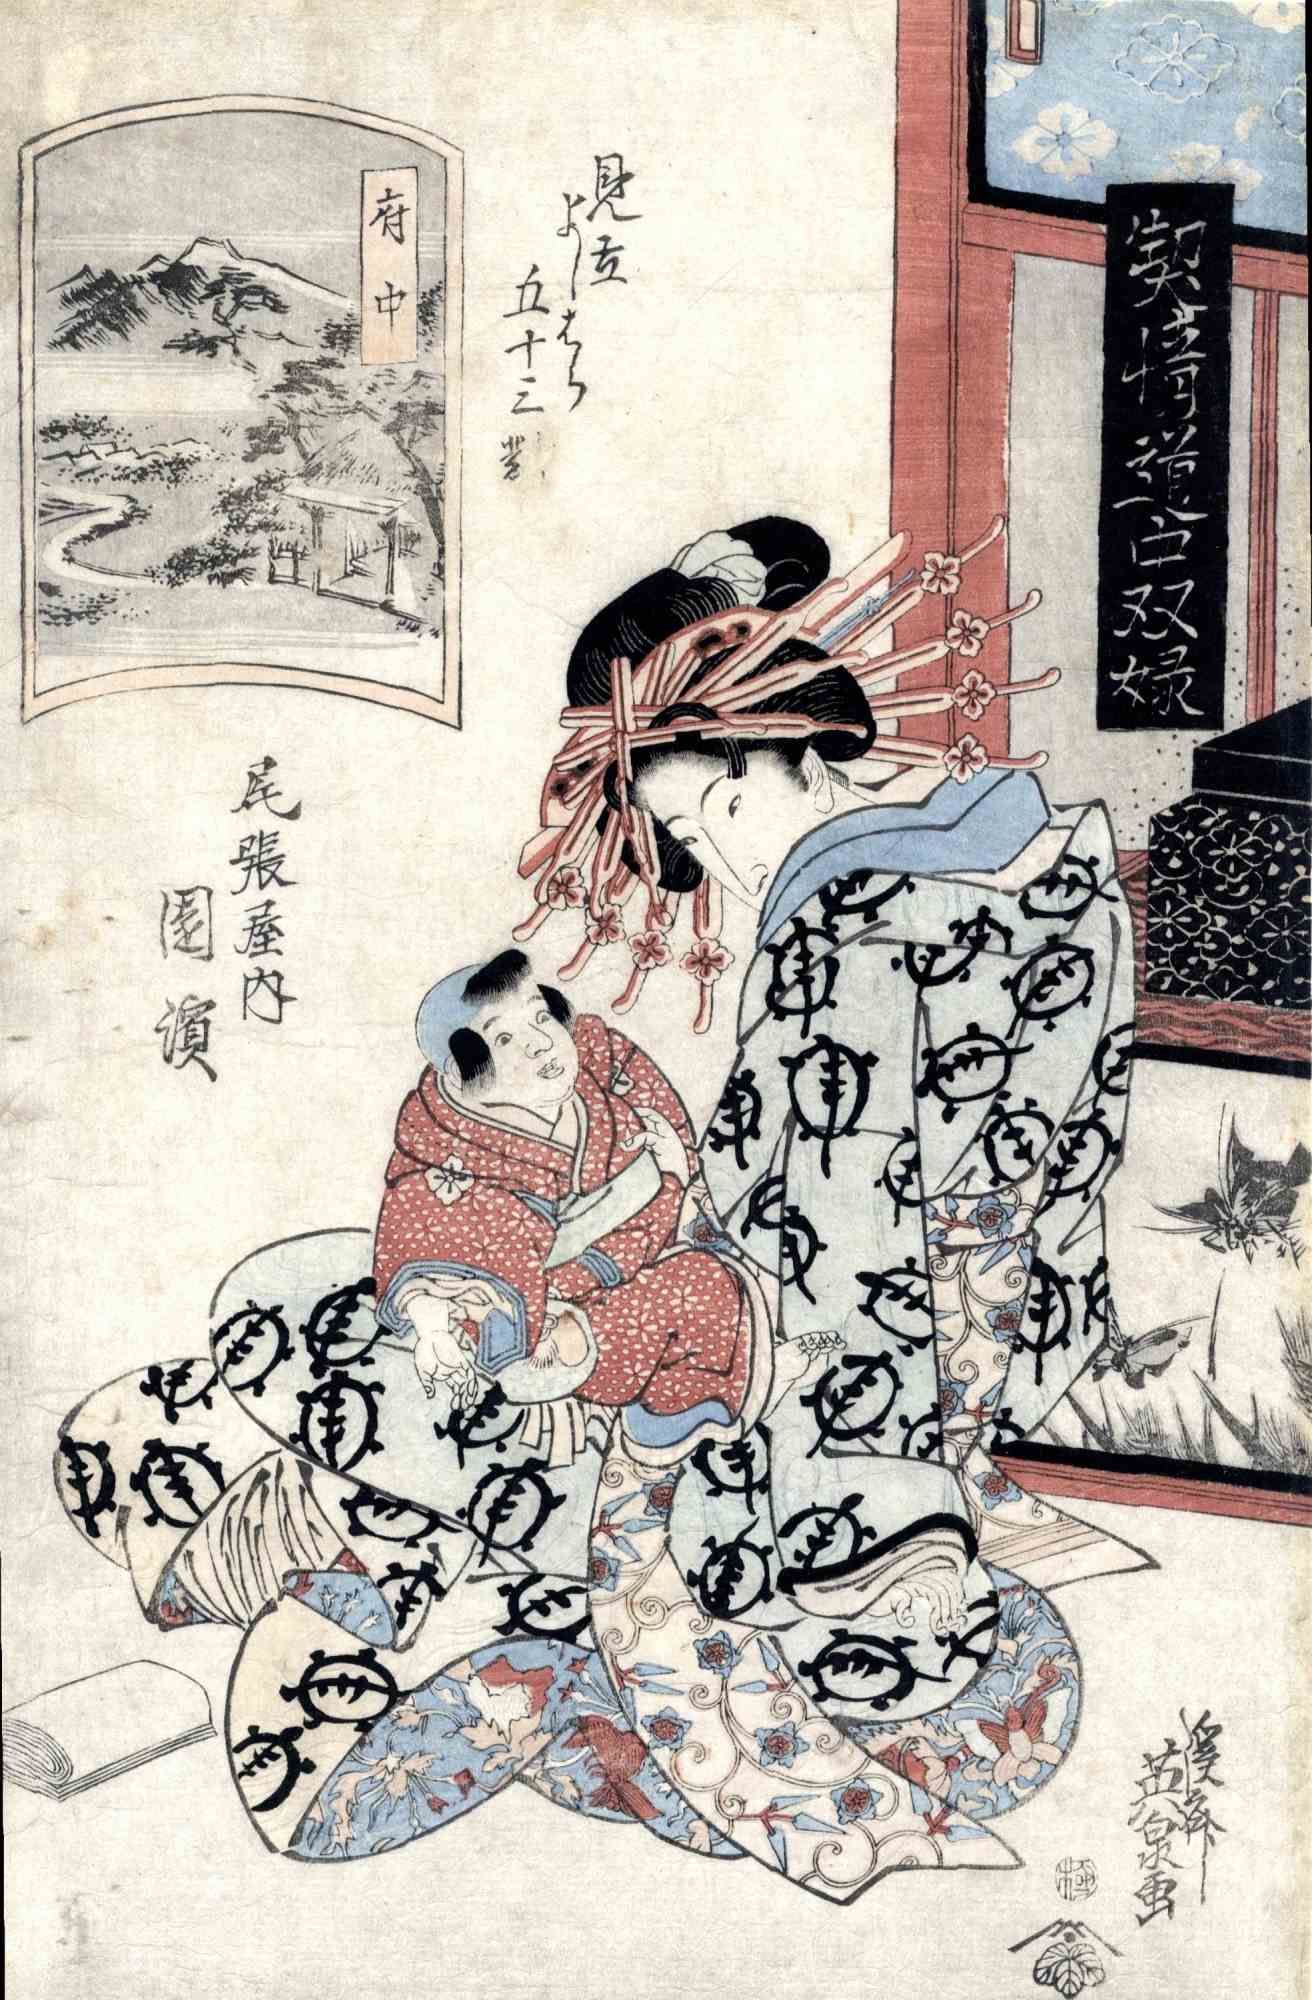 契情道中双娽
見立
よしはら
五十三對
府中
尾張屋内
園濱
溪斎
英泉画
極